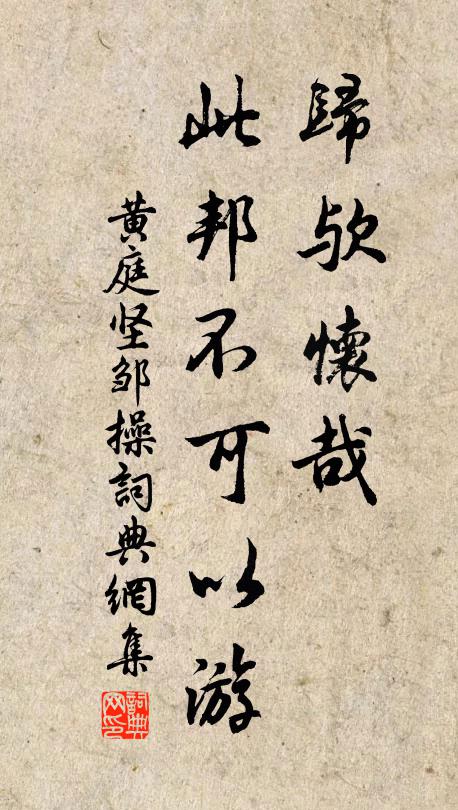 歸欤懷哉
此邦不可以游
黄庭坚邹操詞典網集
詞典网印